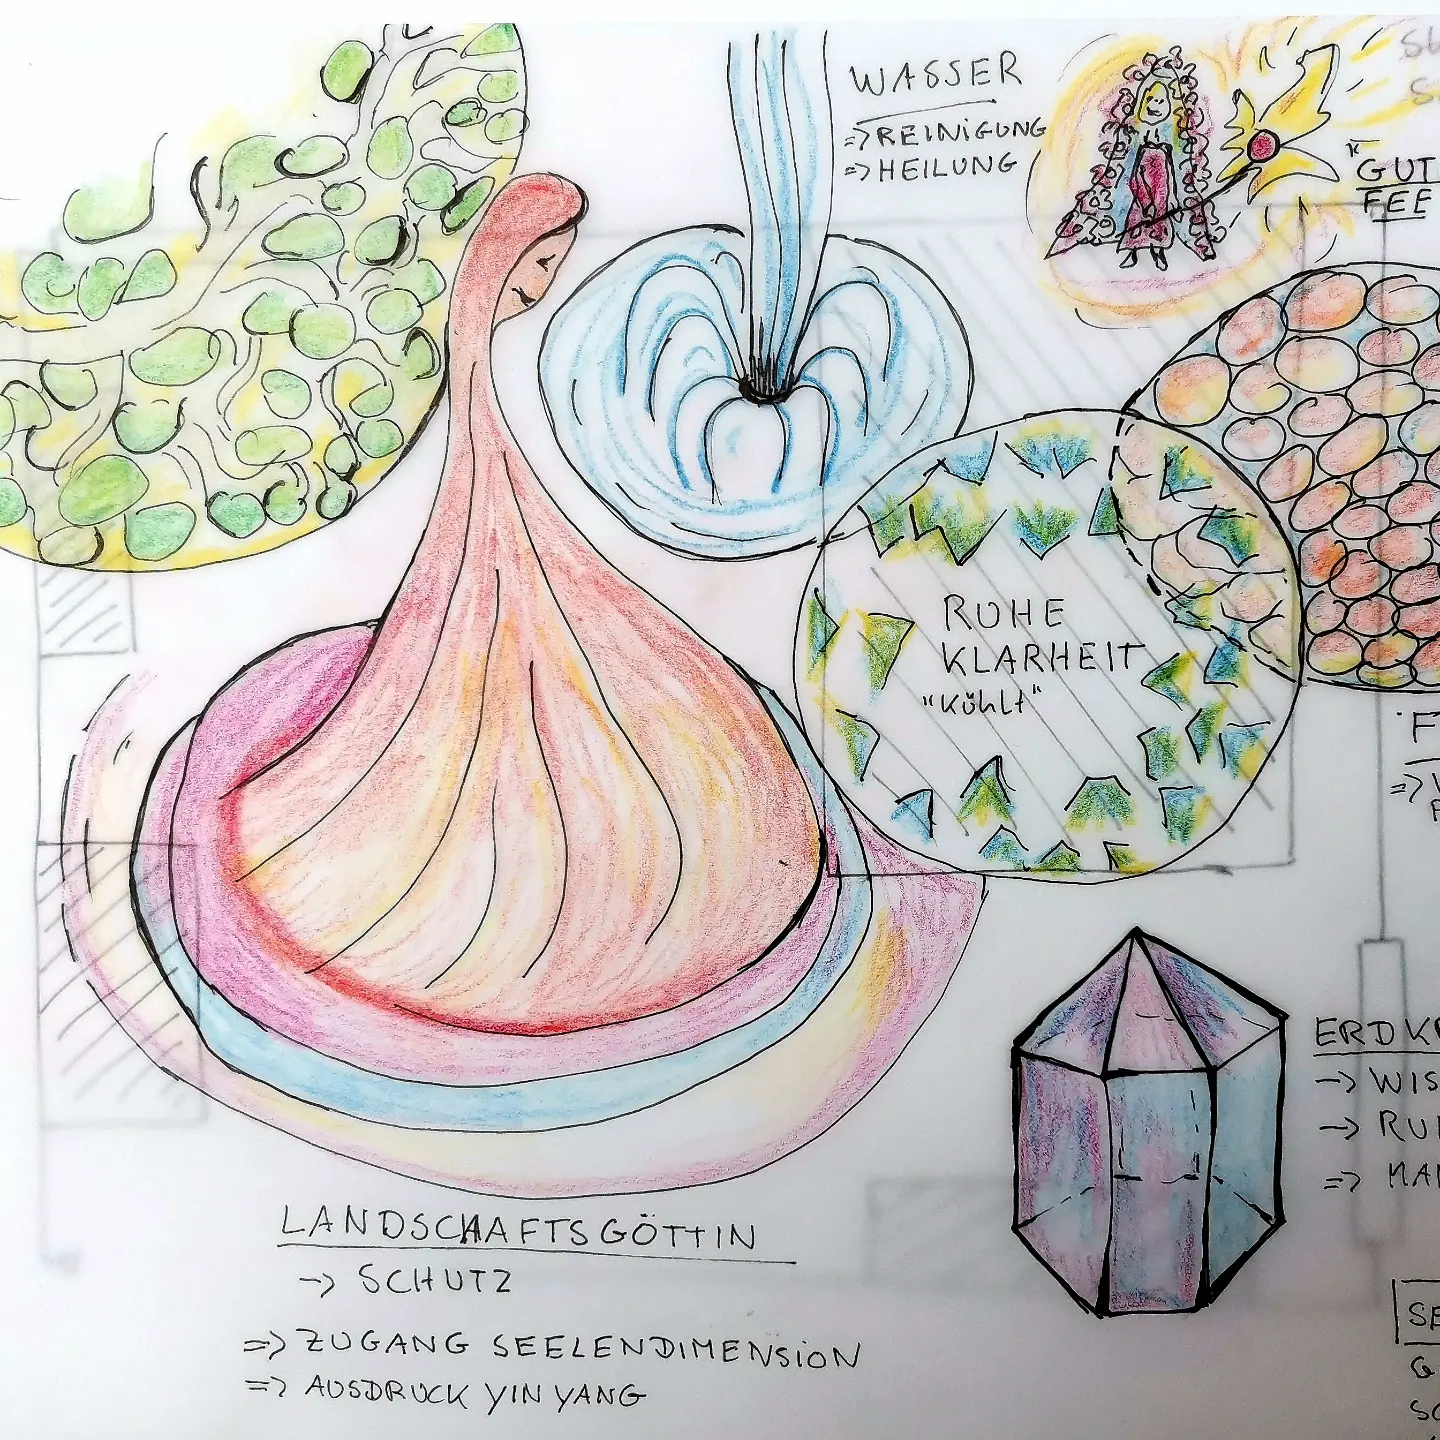 WASSER
=> REINIGUNG
=> HEILUNG
GUT
FEE
RUHE
KLARHEIT
"Kühlt"
ERDKR
-> WIS
-> RUH
=> MAN
LANDSCHAFTSGÖTTIN
-> SCHUTZ
=> ZUGANG SEELENDIMENSION
=> AUSDRUCK YIN YANG
SE
G